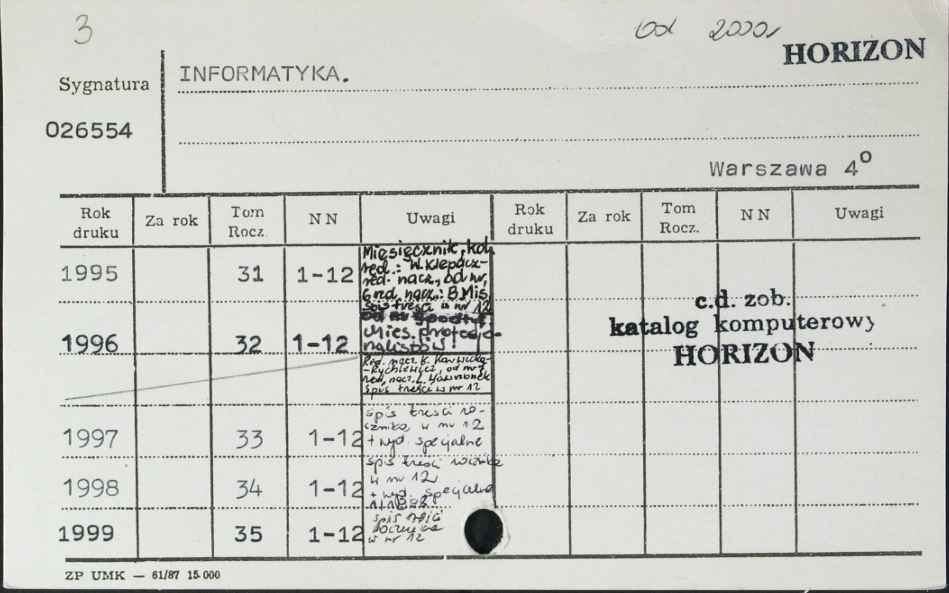 3
od 2000r
HORIZON
Sygnatura
INFORMATYKA.
026554
Warszawa 4°
Rok druku Za rok Tom Rocz. NN Uwagi Rok druku Za rok Tom Rocz. NN Uwagi
1995 31 1-12 Miesięcznik, kol.
red.: W. Klepacz-
red. nacz., od nr
6 red. nacz.: B. Mis
spis treści w nr 12
1996 32 1-12
od nr
Mies. profesjo-
nalistów
Red. nacz. K.
od nr 7
red. nacz.
spis treści w nr 12
1997 33 1-12 spis treści ro-
cznika w nr 12
+ wyd. specjalne
1998 34 1-12 spis treści
w nr 12
+ wyd. specjalne
1999 35 1-12 spis treści
w nr 12
c.d. zob.
katalog komputerowy
HORIZON
ZP UMK — 61/87 15.000